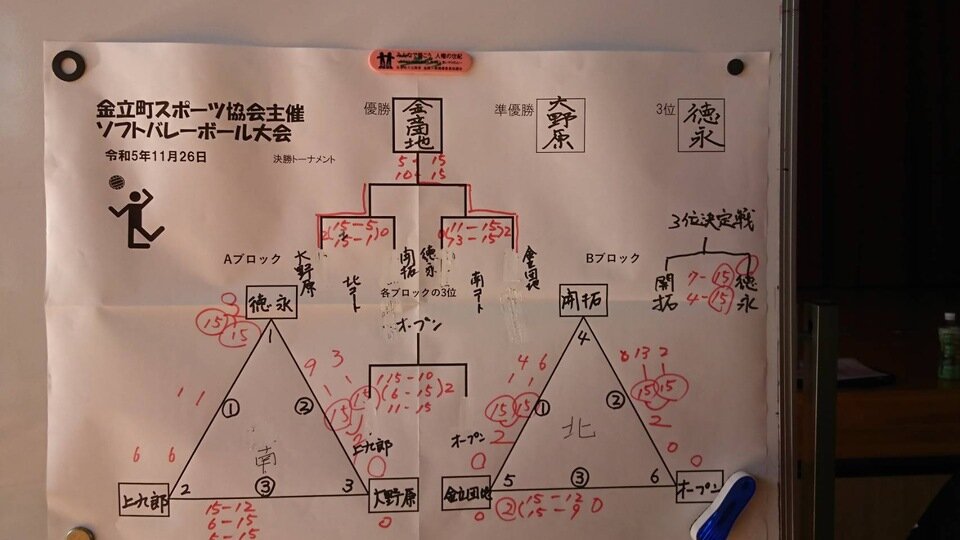 金立町スポーツ協会主催
ソフトバレーボール大会
令和5年11月26日
決勝トーナメント
優勝
準優勝
大野原
3位
徳永
5-15
10-15
3位決定戦
開拓
徳永
7-15
4-15
2(15-5)0
15-1
0(11-15)2
13-15
大野原
北コート
開拓
徳永
南コート
金団地
Aブロック
Bブロック
各ブロックの3位
オープン
15-10
(6-15)2
11-15
上九郎
オープン
徳永
1
15
15
9 3
15
①
②
6 6
南
上九郎
2
③
3
大野原
0
15-12
6-15
開拓
4
4 6
15 15
2
①
②
13 2
15 15
2
北
0
金立団地
5
③
6
オープン
0
0
②(15-12
15-9 0